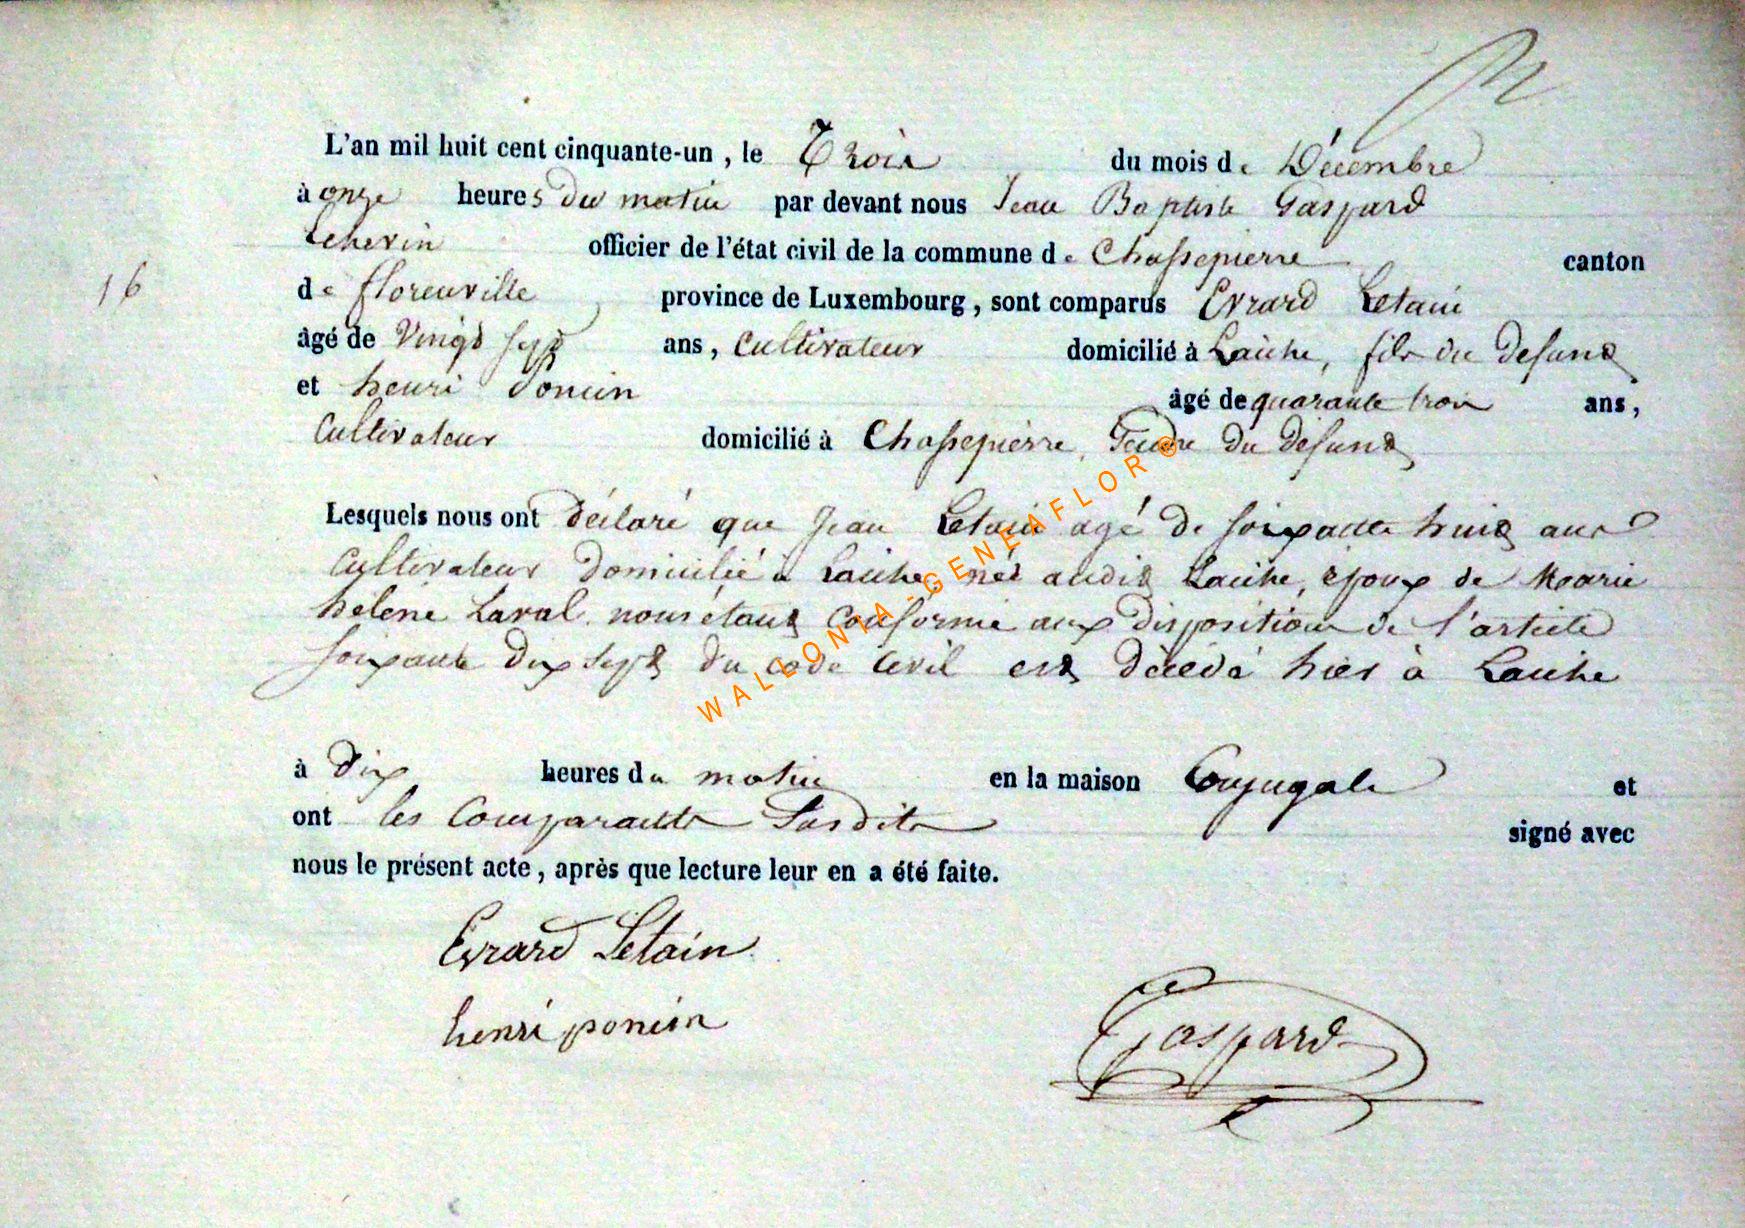 L'an mil huit cent cinquante-un, le Trois du mois de Décembre
à onze heures du matin par devant nous Jean Baptiste Gaspard
Echevin officier de l'état civil de la commune de Chassepierre canton
16
de florenville province de Luxembourg, sont comparus Evrard Letain
âgé de vingt sept ans, cultivateur domicilié à Laiche, fils du defunt
et henri Poncin âgé de quarante trois ans,
Cultivateur domicilié à Chassepierre, Gendre du défunt
Lesquels nous ont déclaré que Jean Letain agé de soixante huit ans
Cultivateur domicilié à Laiche, né audit Laiche, époux de Marie
hélène Laval nous étant conformé aux dispositions de l'article
soixante dix sept du code Civil est décédé hier à Laiche
à dix heures du matin en la maison Conjugale et
ont les Comparants Susdits signé avec
nous le présent acte, après que lecture leur en a été faite.
Evrard Letain
henri poncin
Gaspard
WALLONIA-GENEAFLOR ®